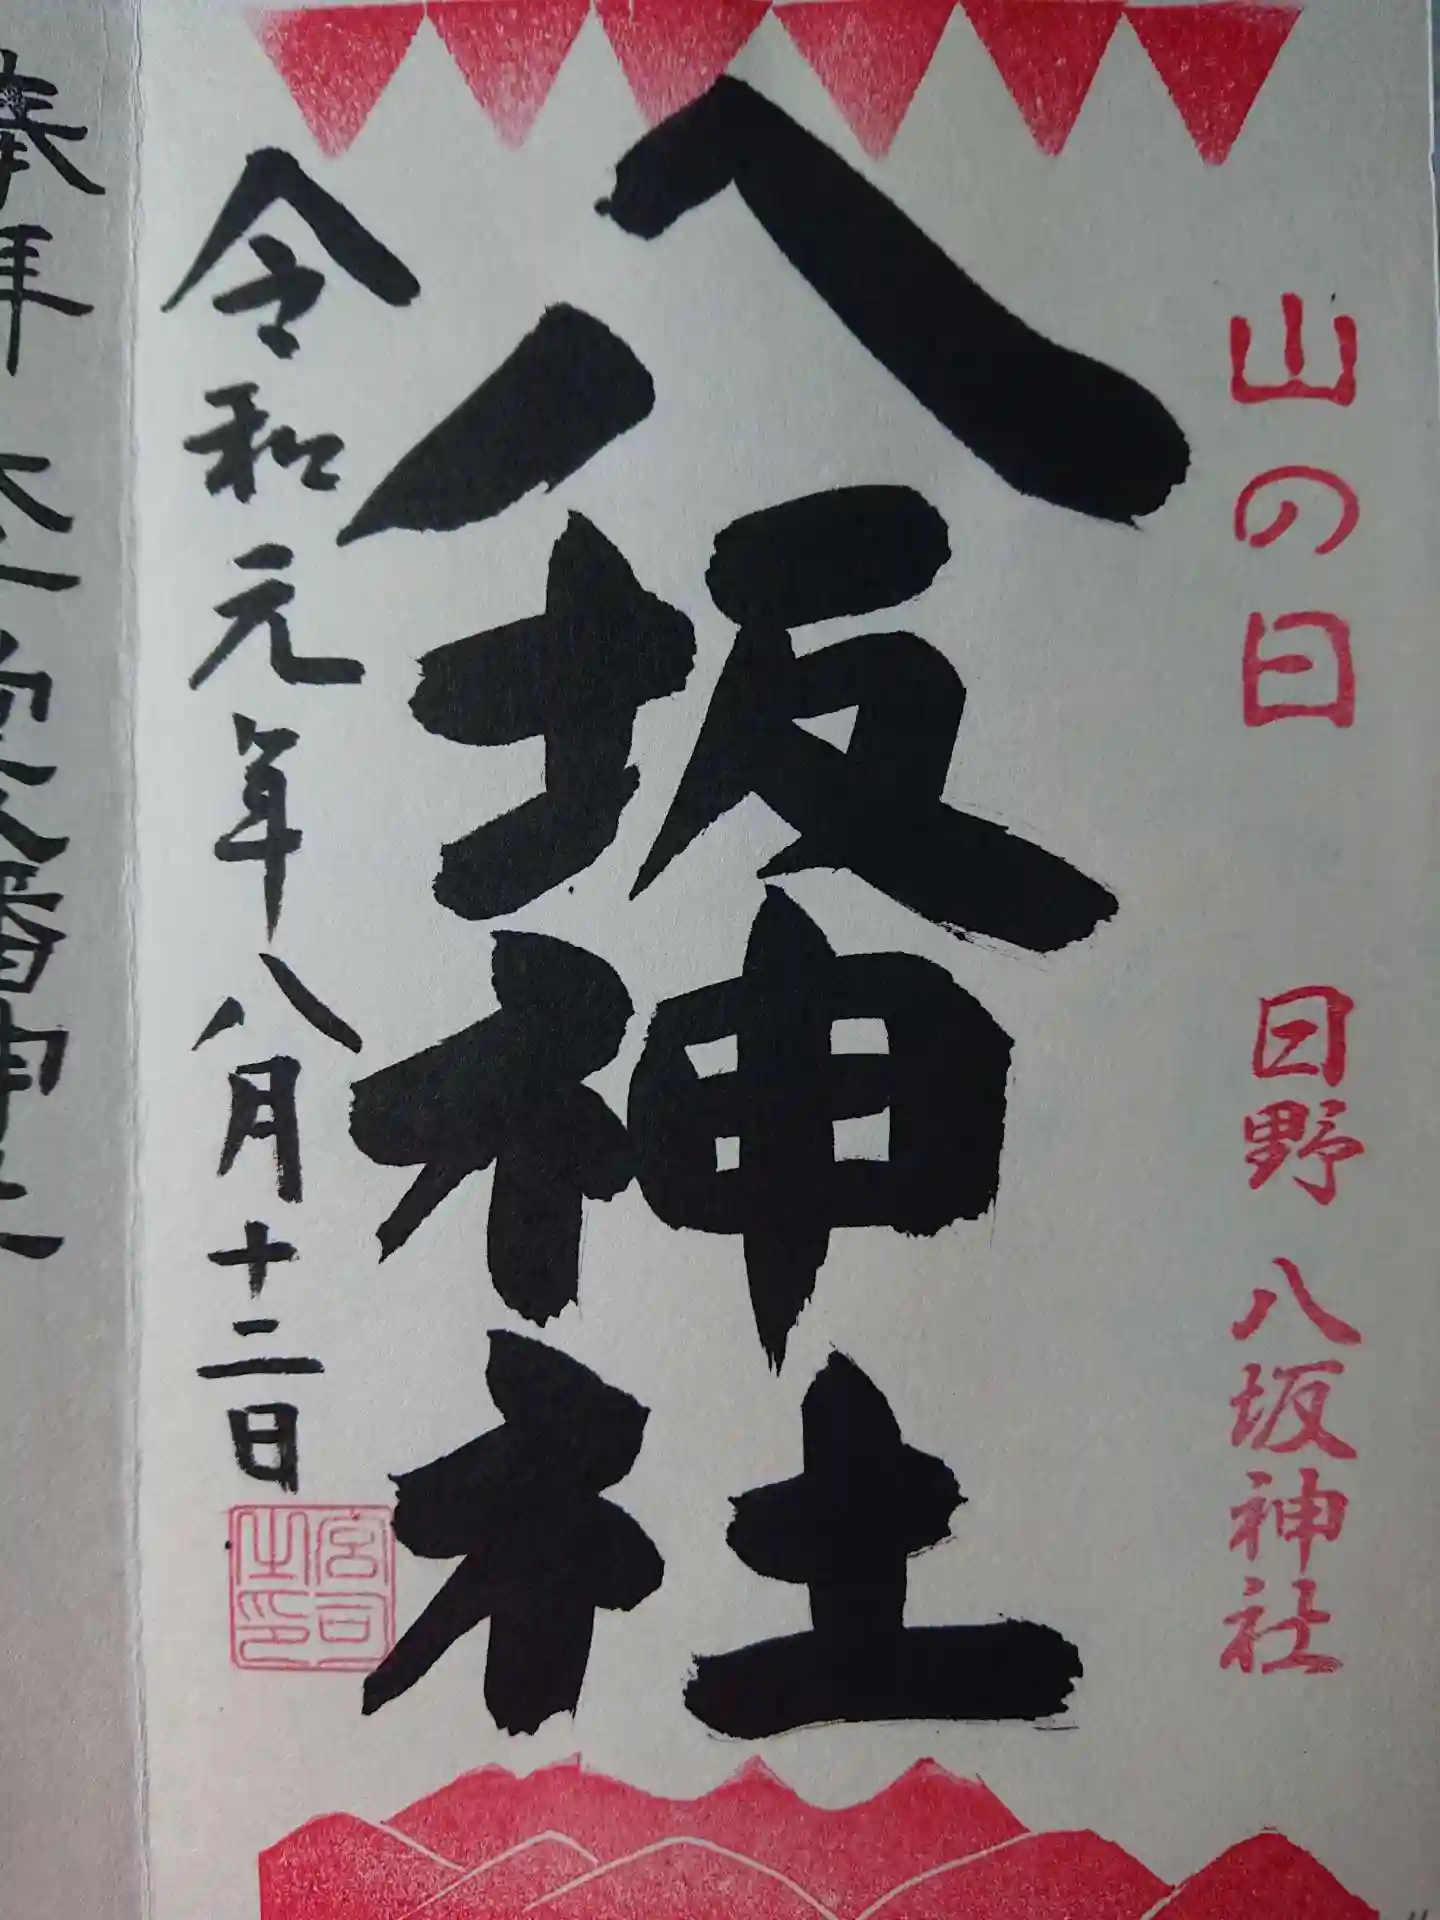 山の日
日野 八坂神社
八坂神社
令和元年八月十二日
宮司之印
奉拝